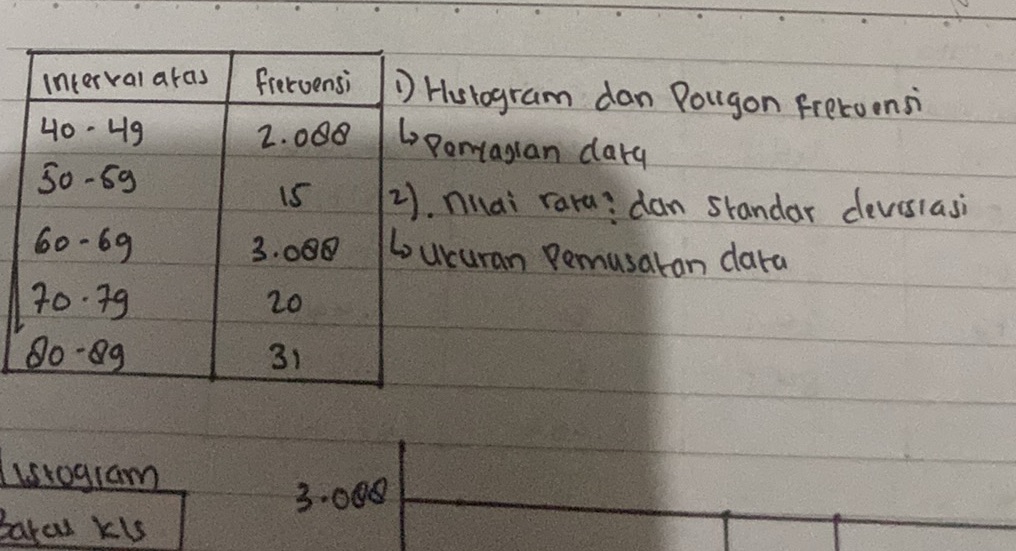 Interval atas Frekuensi
40 - 49 2.088
50 - 59 15
60 - 69 3.088
70 - 79 20
80 - 89 31
1) Histogram dan Poligon Frekuensi
↳ Penyagian data
2). Nilai rata² dan standar devisiasi
↳ Ukuran Pemusatan data
Histogram
Batas kls
3.088